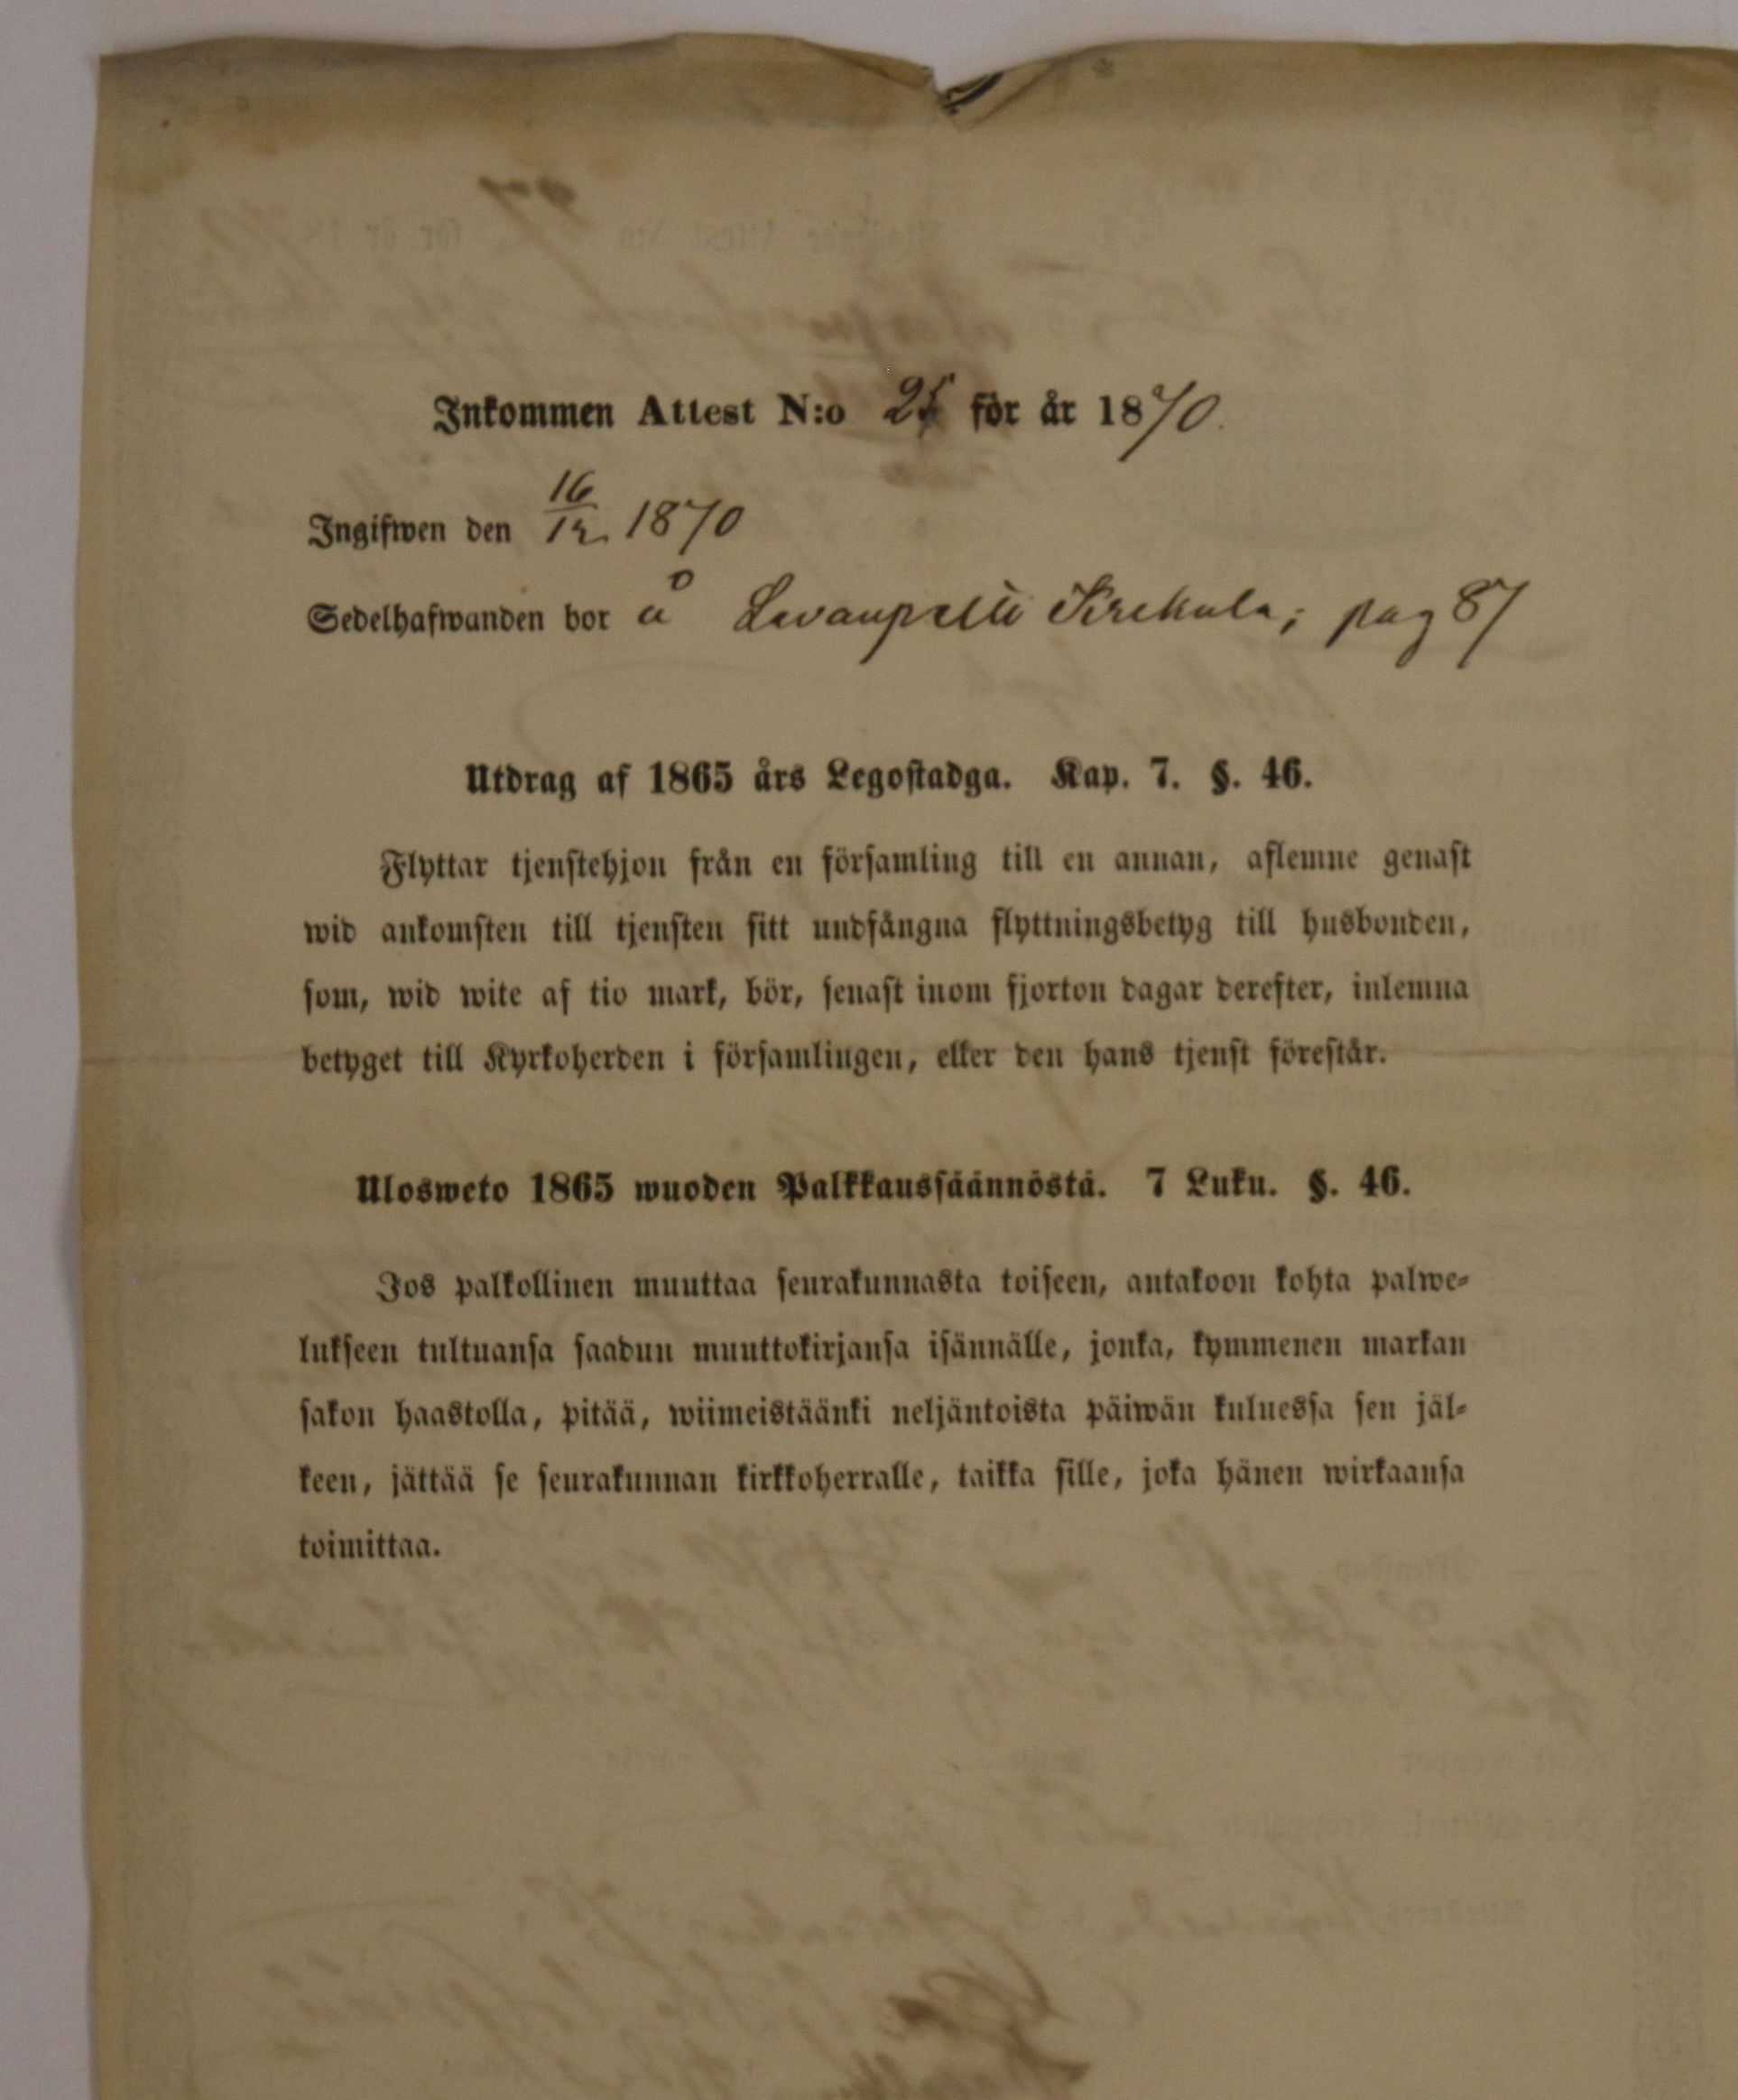 Inkommen Attest N:o 25 för år 1870.
Ingifwen den 16/12 1870
Sedelhafwanden bor å Kirekula; pag 87
Utdrag af 1865 års Legostadga. Kap. 7. §. 46.
Flyttar tjenstehjon från en församling till en annan, aflemne genast
wid ankomsten till tjensten sitt undfångna flyttningsbetyg till husbonden,
som, wid wite af tio mark, bör, senast inom fjorton dagar derefter, inlemna
betyget till Kyrkoherden i församlingen, eller den hans tjenst förestår.
Ulosweto 1865 wuoden Palkkaussäännöstä. 7 Luku. §. 46.
Jos palkollinen muuttaa seurakunnasta toiseen, antakoon kohta palwe-
lukseen tultuansa saadun muuttokirjansa isännälle, jonka, kymmenen markan
sakon haastolla, pitää, wiimeistäänki neljäntoista päiwän kuluessa sen jäl-
keen, jättää se seurakunnan kirkkoherralle, taikka sille, joka hänen wirkaansa
toimittaa.